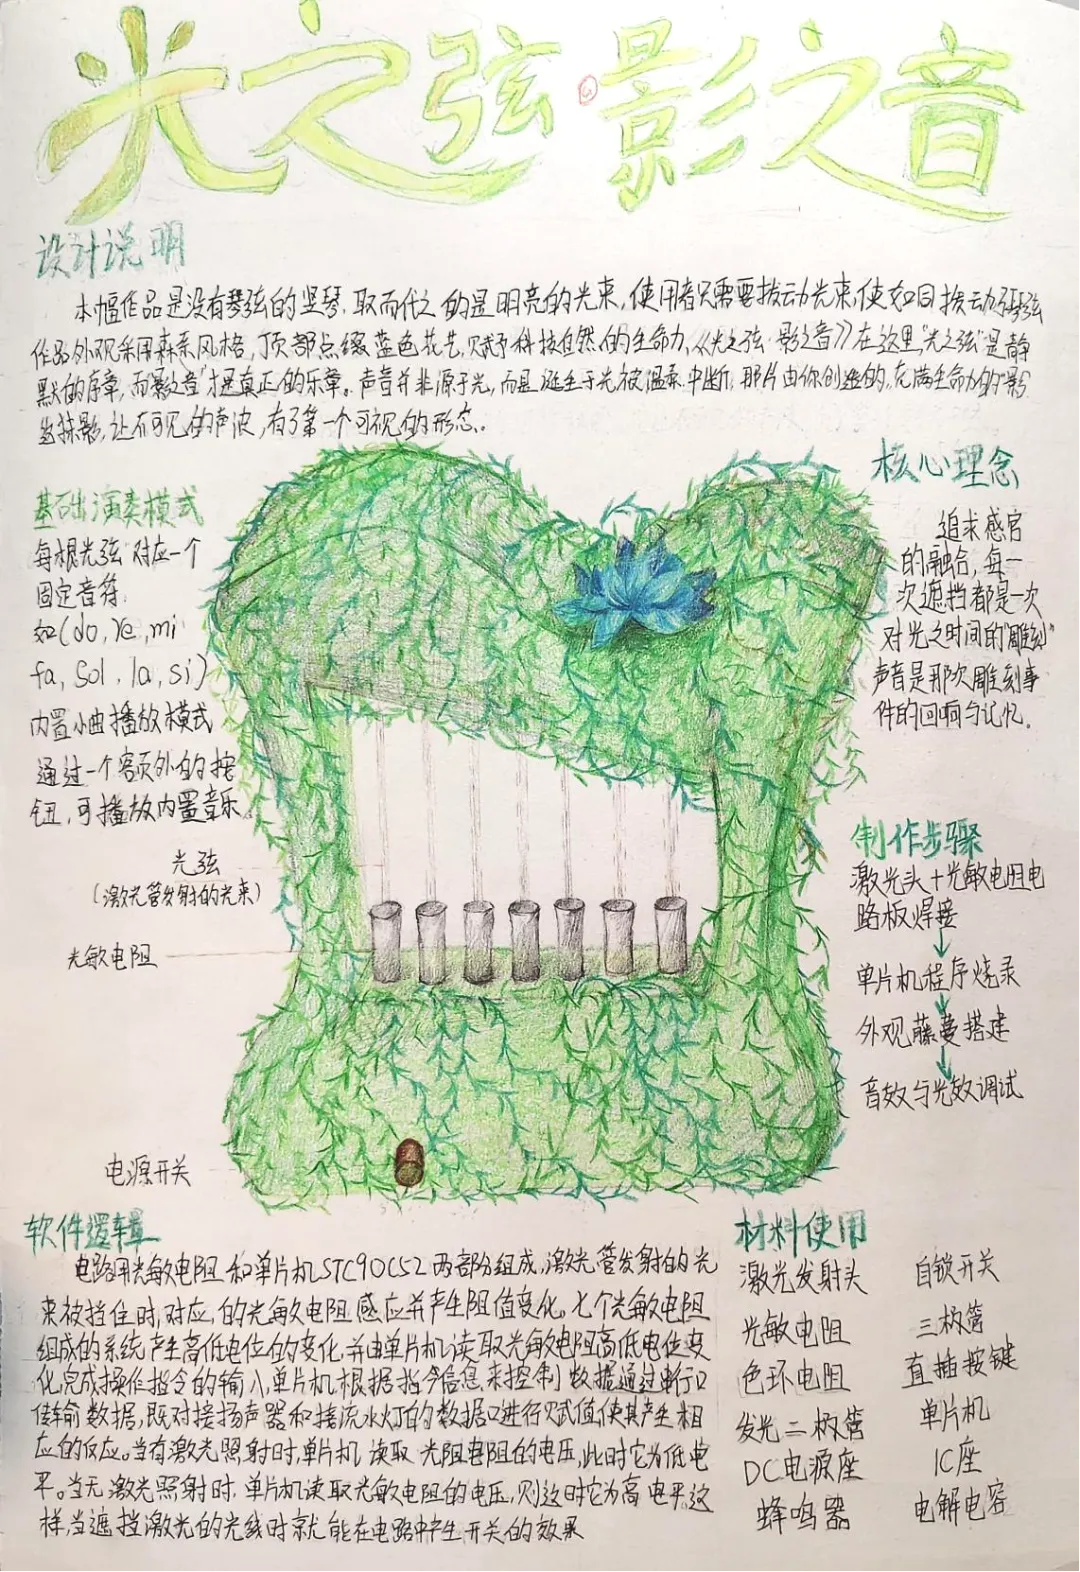 光之弦·影之音
设计说明
本幅作品是没有琴弦的竖琴,取而代之的是明亮的光束,使用者只需要拨动光束,使如同拨动琴弦
作品外观采用森系风格,顶部点缀蓝色花艺,赋予科技自然的生命力,《光之弦·影之音》在这里,"光之弦"是静
默的序章,而"影之音"才是真正的乐章。声音并非源于光,而是诞生于光被温柔中断,那片由你创造的,充满生命力的"影
当掠影,让不可见的声波,有了第一个可视的形态。
核心理念
追求感官
的融合,每一
次遮挡都是一次
对光之时间的"雕刻"
声音是那次雕刻事
件的回响与记忆。
基础演奏模式
每根光弦对应一个
固定音符
如(do,re,mi
fa,Sol,la,si)
内置小曲播放模式
通过一个额外的按
钮,可播放内置音乐
光弦
(激光管发射的光束)
光敏电阻
电源开关
制作步骤
激光头+光敏电阻电
路板焊接
↓
单片机程序烧录
↓
外观藤蔓搭建
↓
音效与光效调试
软件逻辑
电路用光敏电阻和单片机STC90C52两部分组成,激光管发射的光
束被挡住时,对应,的光敏电阻感应并产生阻值变化。七个光敏电阻
组成的系统产生高低电位的变化,并由单片机读取光敏电阻高低电位变
化,完成操作指令的输入,单片机根据指令信息,来控制数据通过串行口
传输数据,既对接扬声器和接流水灯的数据口进行赋值,使其产生相
应的反应。当有激光照射时,单片机读取光阻电阻的电压,此时它为低电
平。当无激光照射时,单片机读取光敏电阻的电压,则这时它为高电平。这
样,当遮挡激光的光线时就能在电路中产生开关的效果
材料使用
激光发射头
光敏电阻
色环电阻
发光二极管
DC电源座
蜂鸣器
自锁开关
三极管
直插按键
单片机
IC座
电解电容